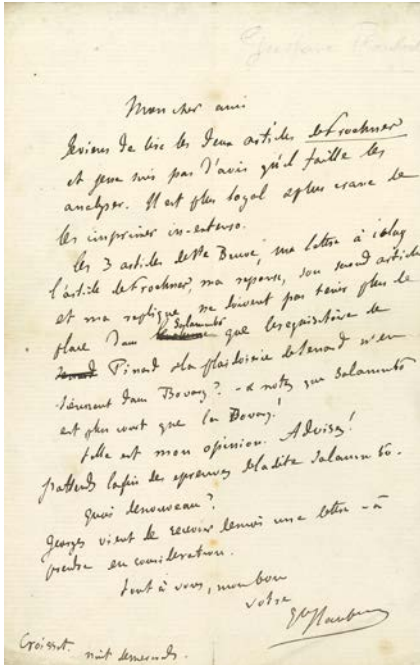 Gustave Flaubert
Mon cher ami
Je viens de lire les deux articles de Froehner
et je ne suis pas d'avis qu'il faille les
analyser. Il est plus loyal & plus crane de
les imprimer in-extenso.
Les 3 articles de Ste Beuve, ma lettre à
l'article de Froehner, ma réponse, son second article
et ma réplique ne doivent pas tenir plus de
place dans Salammbô que le réquisitoire de
Pinard & la plaidoirie de Senard n'en
tiennent dans Bovary? - & notez que Salammbô
est plus court que la Bovary!
telle est mon opinion. Advisez!
J'attends la fin des épreuves de la dite Salammbô.
Quoi de nouveau?
Georges vient de recevoir de moi une lettre - à
prendre en considération.
tout à vous, mon bon
votre
Gve Flaubert
Croisset.
nuit de mercredi.